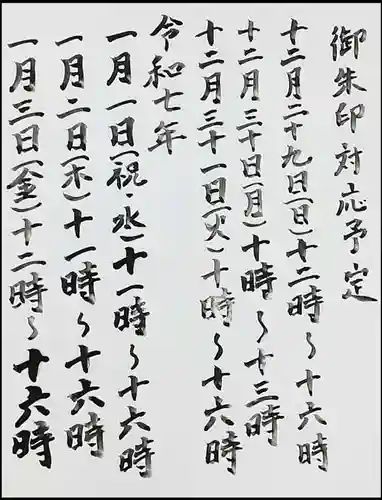 御朱印対応予定
十二月二十九日(日)十二時〜十六時
十二月三十日(月)十時〜十三時
十二月三十一日(火)十時〜十六時
令和七年
一月一日(祝・水)十一時〜十六時
一月二日(木)十一時〜十六時
一月三日(金)十二時〜十六時